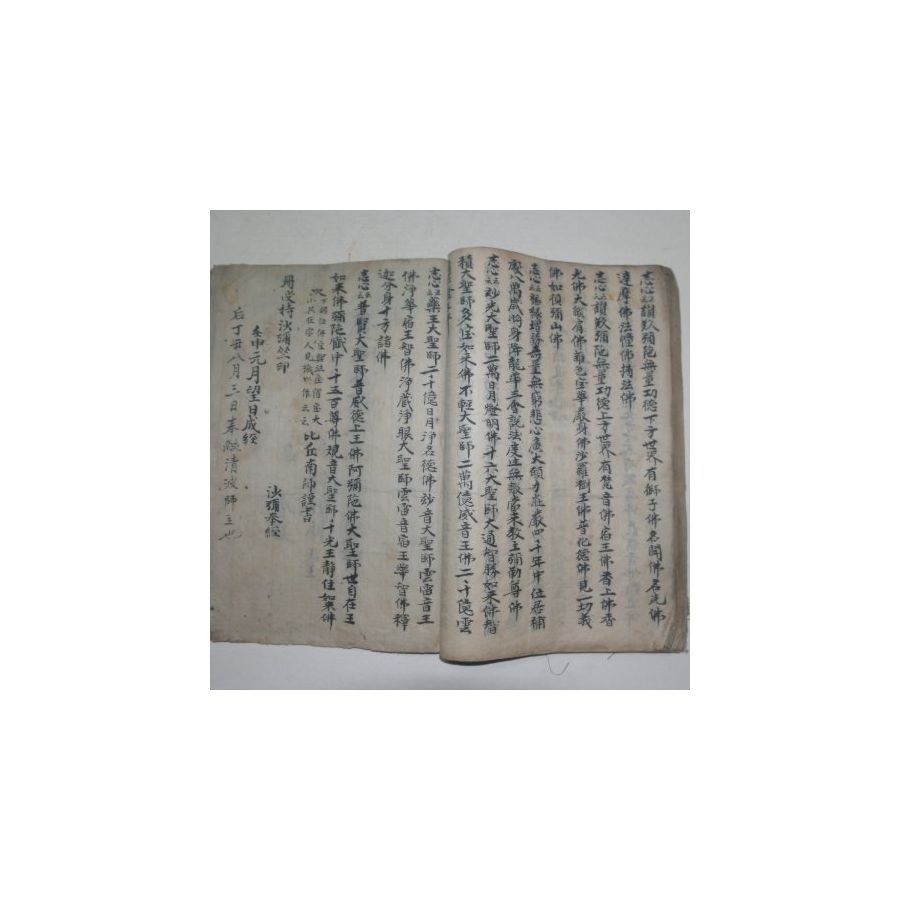 志心讃歎彌陀無量功德下方世界有獅子佛名聞佛名光佛
達摩佛法幢佛持法佛
志心讃歎彌陀無量功德上方世界有梵音佛宿王佛香上佛香
光佛大焰肩佛雜色宝華嚴身佛沙羅樹王佛宝華德佛見一切義
佛如須彌山佛
志心增勝無量無窮悲心廣大願力莊嚴四千年中位居補
處八萬歲時身降龍華三會說法度生無數當來教主彌勒尊佛
志心妙光大聖師二萬日月燈明佛十六大聖師大通智勝如來佛智
積大聖師多宝如來佛不輕大聖師二萬億威音王佛二千億雲
志心藥王大聖師二千億日月淨名德佛妙音大聖師雲雷音王
佛淨華宿王智佛淨藏淨眼大聖師雲雷音宿王華智佛釋
迦分身十方諸佛
志心普賢大聖師普威德上王佛阿彌陀佛大聖師世自在王
如來佛彌陀藏中千五百尊佛觀音大聖師千光王靜住如來佛
比丘南師謹書
持沙彌竺印
沙彌奉經
壬申元月望日成經
后丁丑八月三日奉 清波師主